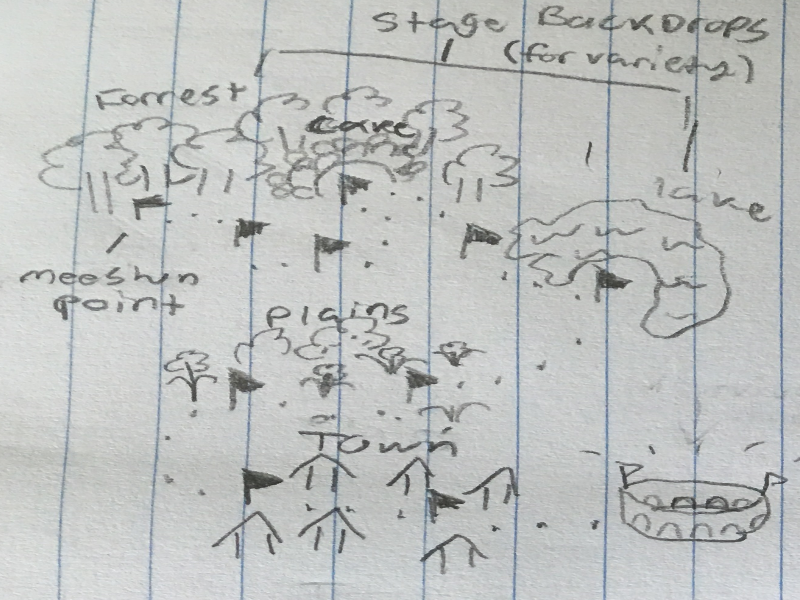 Stage Backdrops
(for variety)
Forrest
cave
lake
meeshun
point
plains
Town